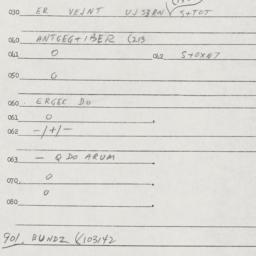 030. ER VEJNT
040. ANTGEG+1BER (213
041. 0 042. S+0X#7
050. 0
060. ERGEC DO
061. 0
062 -/+/-
063. - Q DO ARUM
070. 0
080. 0
901. BUNDZ (103142